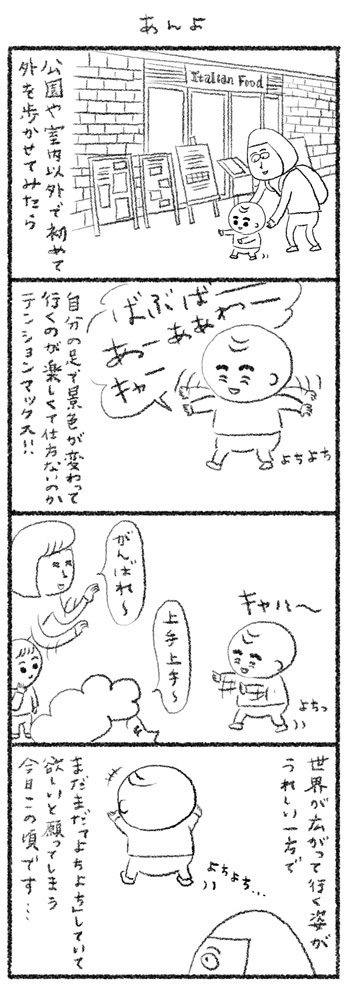 あんよ
Italian Food
公園や室内以外で初めて
外を歩かせてみたら
ばぶばー
ああわー
あっー
キャー
よちよち
自分の足で景色が変わって
行くのが楽しくて仕方ないのか
テンションマックス!!
キャハハ〜
がんばれ〜
上手上手〜
よちっ
世界が広がって行く姿が
うれしい一方で
よちよち…
まだまだ「よちよち」していて
欲しいと願ってしまう
今日この頃です…